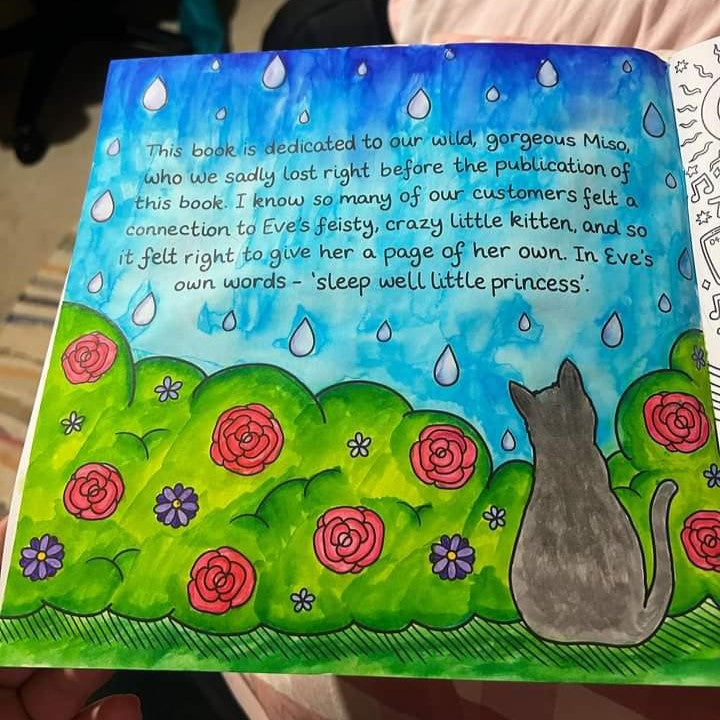 This book is dedicated to our wild, gorgeous Miso,
who we sadly lost right before the publication of
this book. I know so many of our customers felt a
connection to Eve's feisty, crazy little kitten, and so
it felt right to give her a page of her own. In Eve's
own words - 'sleep well little princess'.